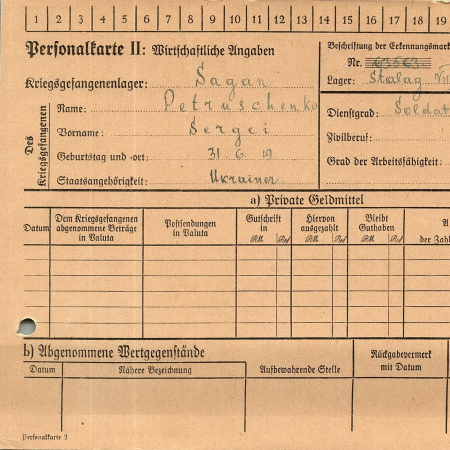 1 2 3 4 5 6 7 8 9 10 11 12 13 14 15 16 17 18 19
Personalkarte II: Wirtschaftliche Angaben
Beschriftung der Erkennungsmark
Nr. 63563
Kriegsgefangenenlager: Sagan
Lager: Stalag VII
Des Kriegsgefangenen
Name: Petruschenko
Vorname: Sergei
Geburtstag und -ort: 31 6 19
Staatsangehörigkeit: Ukrainer
Dienstgrad: Soldat
Zivilberuf:
Grad der Arbeitsfähigkeit:
a) Private Geldmittel
Datum
Dem Kriegsgefangenen abgenommene Beträge in Valuta
Postsendungen in Valuta
Gutschrift in
RM. Pf
Hiervon ausgezahlt
RM. Pf
Bleibt Guthaben
RM. Pf
A
der Zahl
b) Abgenommene Wertgegenstände
Datum
Nähere Bezeichnung
Aufbewahrende Stelle
Rückgabevermerk mit Datum
Personalkarte 2